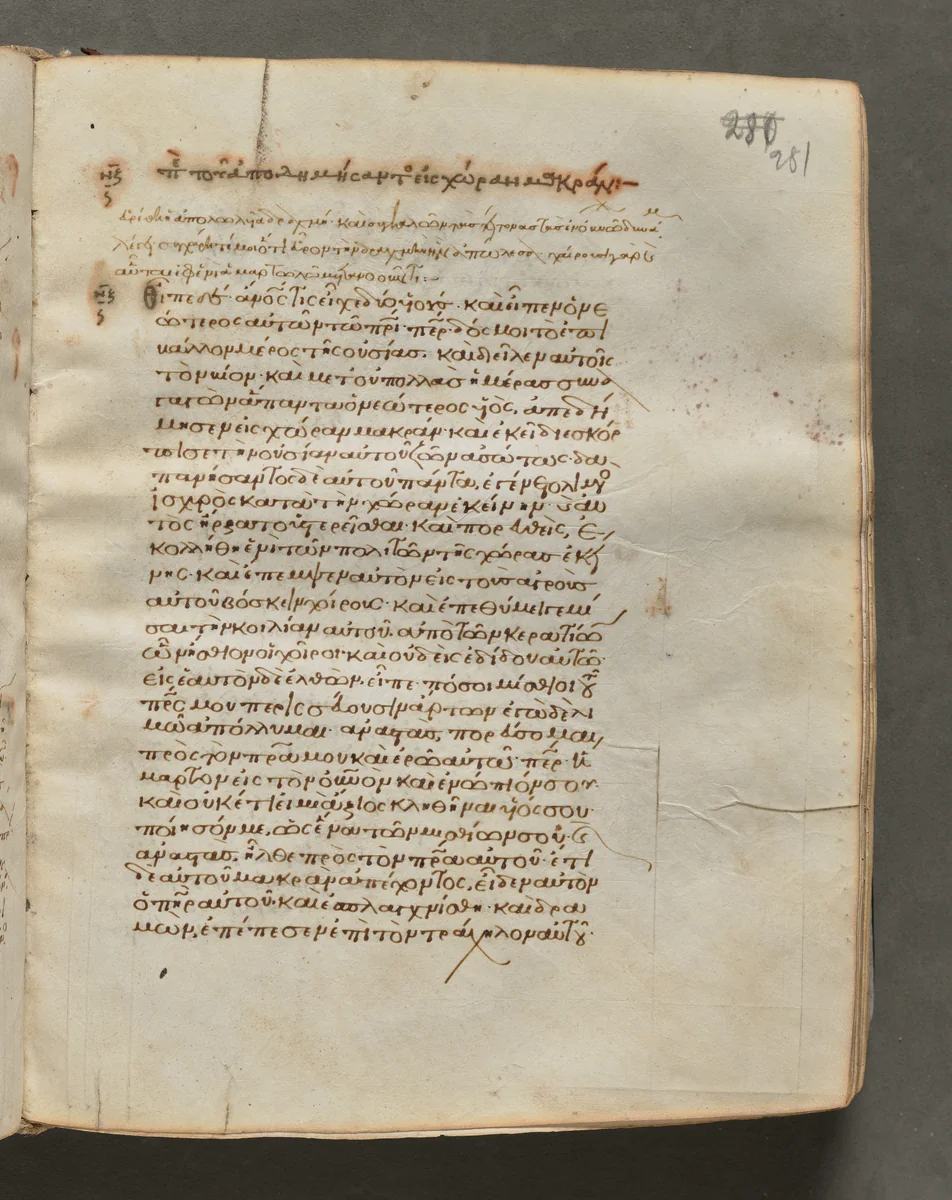 281
περὶ τοῦ ἀποδημήσαντος εἰς χώραν μακράν:—
εἶπε δὲ· ἄνος τις εἶχε δύο υἱούς· καὶ εἶπεν ὁ νε
ώτερος αὐτῶν τῶ πρι· περ δός μοι τὸ ἐπι
βάλλον μέρος τῆς οὐσίας. καὶ διεῖλεν αὐτοῖς
τὸν βίον· καὶ μετ οὐ πολλὰς ἡμέρας συνα
γαγὼν ἅπαντα ὁ νεώτερος υἱός, ἀπεδή
μησεν εἰς χώραν μακράν· καὶ ἐκεῖ διεσκόρ
πισε τὴν οὐσίαν αὐτοῦ ζῶν ἀσώτως· δα
πανήσαντος δὲ αὐτοῦ πάντα, ἐγένετο λιμὸς
ἰσχυρὸς κατὰ τὴν χώραν ἐκείνην· καὶ αὐ
τὸς ἤρξατο ὑστερεῖσθαι· καὶ πορευθεὶς, ἐ
κολλήθη ἑνὶ τῶν πολιτῶν τῆς χώρας ἐκεί
νης· καὶ ἔπεμψεν αὐτὸν εἰς τοὺς ἀγροὺς
αὐτοῦ βόσκειν χοίρους· καὶ ἐπεθύμει γεμί
σαι τὴν κοιλίαν αὐτοῦ. ἀπὸ τῶν κερατίων
ὧν ἤσθιον οἱ χοῖροι· καὶ οὐδεὶς ἐδίδου αὐτῶ·
εἰς ἑαυτὸν δὲ ἐλθὼν, εἶπε· πόσοι μίσθιοι τοῦ
πρς μου περισσεύουσιν ἄρτων ἐγὼ δὲ λι
μῶ ἀπόλλυμαι· ἀναστὰς, πορεύσομαι
πρὸς τὸν πρα μου καὶ ἐρῶ αὐτῶ· περ· ἥ
μαρτον εἰς τὸν οὐνον καὶ ἐνώπιόν σου·
καὶ οὐκέτι εἰμὶ ἄξιος κληθῆναι υἱός σου·
ποίησόν με, ὡς ἕνα τῶν μισθίων σου· καὶ
ἀναστὰς, ἦλθε πρὸς τὸν πρα αὐτοῦ· ἔτι
δὲ αὐτοῦ μακρὰν ἀπέχοντος, εἶδεν αὐτὸν
ὁ πηρ αὐτοῦ· καὶ ἐσπλαγχνίσθη· καὶ δρα
μὼν, ἐπέπεσεν ἐπὶ τὸν τράχηλον αὐτοῦ·